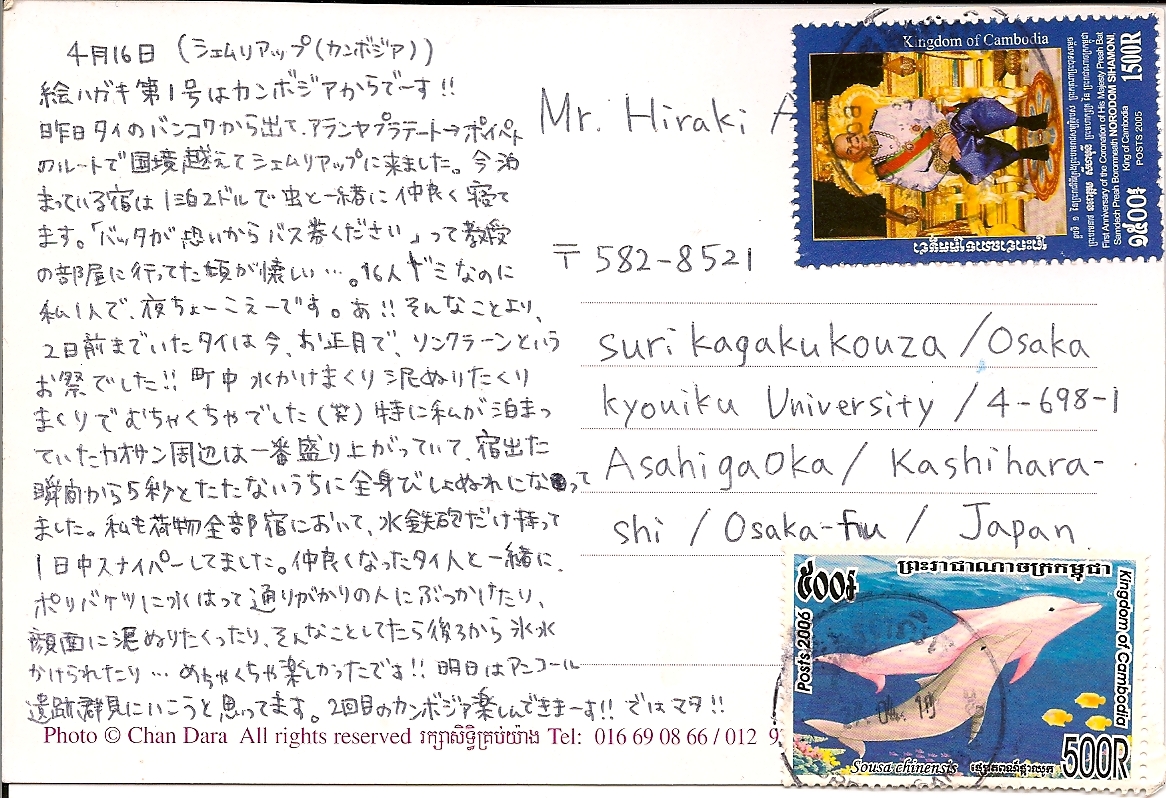 4月16日 (シェムリアップ(カンボジア))
絵ハガキ第1号はカンボジアからでーす!!
昨日タイのバンコクから出て、アランヤプラテート→ポイペト
のルートで国境越えてシェムリアップに来ました。今泊
まっている宿は1泊2ドルで虫と一緒に仲良く寝て
ます。「バッタが恐いからバス券ください」って教授
の部屋に行ってた頃が懐しい…。16人ドミなのに
私1人で、夜ちょーこえーです。あ!!そんなことより、
2日前までいたタイは今、お正月で、ソンクラーンという
お祭でした!!町中水かけまくり泥ぬりたくり
まくりでむちゃくちゃでした(笑)特に私が泊まっ
ていたカオサン周辺は一番盛り上がっていて、宿出た
瞬間から5秒とたたないうちに全身びしょぬれになって
ました。私も荷物全部宿において、水鉄砲だけ持って
1日中スナイパーしてました。仲良くなったタイ人と一緒に、
ポリバケツに水はって通りがかりの人にぶっかけたり、
顔面に泥ぬりたくったり、そんなことしてたら後ろから氷水
かけられたり…めちゃくちゃ楽しかったです!!明日はアンコール
遺跡群見にいこうと思ってます。2回目のカンボジア楽しんできまーす!!ではマタ!!
Photo © Chan Dara All rights reserved រក្សាសិទ្ធិគ្រប់យ៉ាង Tel: 016 69 08 66 / 012
Mr. Hiraki
〒582-8521
suri kagaku kouza /Osaka
kyouiku University / 4-698-1
Asahigaoka / Kashihara-
shi / Osaka-fu / Japan
Kingdom of Cambodia
1500R
First Anniversary of the Coronation of His Majesty Preah Bat
Samdech Preah Boromneath NORODOM SIHAMONI
King of Cambodia
POSTS 2005
១៥០០៛
៥០០៛
ព្រះរាជាណាចក្រកម្ពុជា
Kingdom of Cambodia
Posts 2006
04. 19
Sousa chinensis
500R